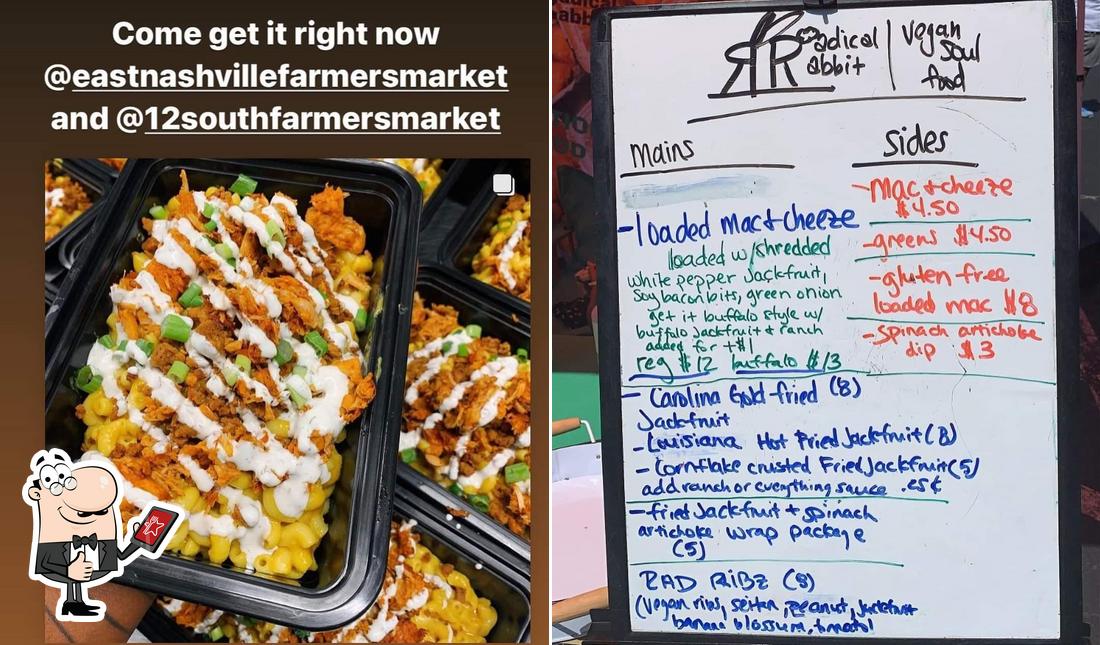 Come get it right now
@eastnashvillefarmersmarket
and @12southfarmersmarket
Radical
Rabbit
Vegan
Soul
food
mains
- loaded mac + cheeze
loaded w/shredded
white pepper Jackfruit,
Soy bacon bits, green onion
get it buffalo style w/
buffalo jackfruit & ranch
added for +$1
reg $12 buffalo $13
- Carolina Gold fried (8)
Jackfruit
- Louisiana Hot Fried Jackfruit (8)
- Cornflake crusted Fried Jackfruit (5)
add ranch or everything sauce
- fried Jackfruit + spinach
artichoke wrap package
(5)
RAD RiBZ (8)
(Vegan ribs, seitan, peanut, jackfruit
banana blossum,
sides
- Mac + cheeze
$4.50
- greens $4.50
- gluten free
loaded mac $8
- spinach artichoke
dip $3